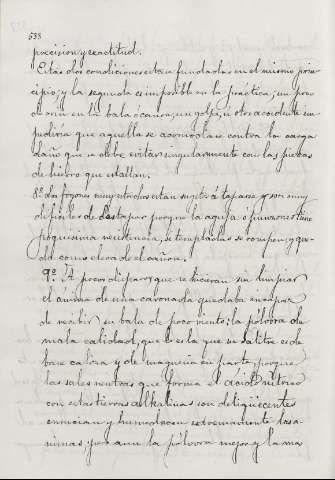 538
precision y exactitud.
Estas dos condiciones estan fundadas en el mismo prin-
cipio; y la segunda es imposible en la practica; un poco
de orin en la bala ó cañon, un golpe, ú otro accidente im-
pediria que aquella se acomodase contra la carga
daño que se debe evitar singularmente con las piezas
de hierro que estallan.
8º Los fogones muy estrechos estan sugetos á taparse y son muy
dificiles de destapar porque la aguja ó punzones tiene
poquisima resistencia, si templadas se rompen y que-
da como clavado el cañon.
9º A pocos disparos que se hicieran sin limpiar
el anima de una caronada quedaba incapaz
de recibir su bala de poco viento; la pólvora de
mala calidad, que es la que su salitre es de
base caliza y de magnesia en parte, porque
las sales neutras que forma el acido nitrico
con estas tierras alkalinas son deliqüecentes
ensucian y humedecen extremamente las a-
nimas; y aun la pólvora mejor y la mas